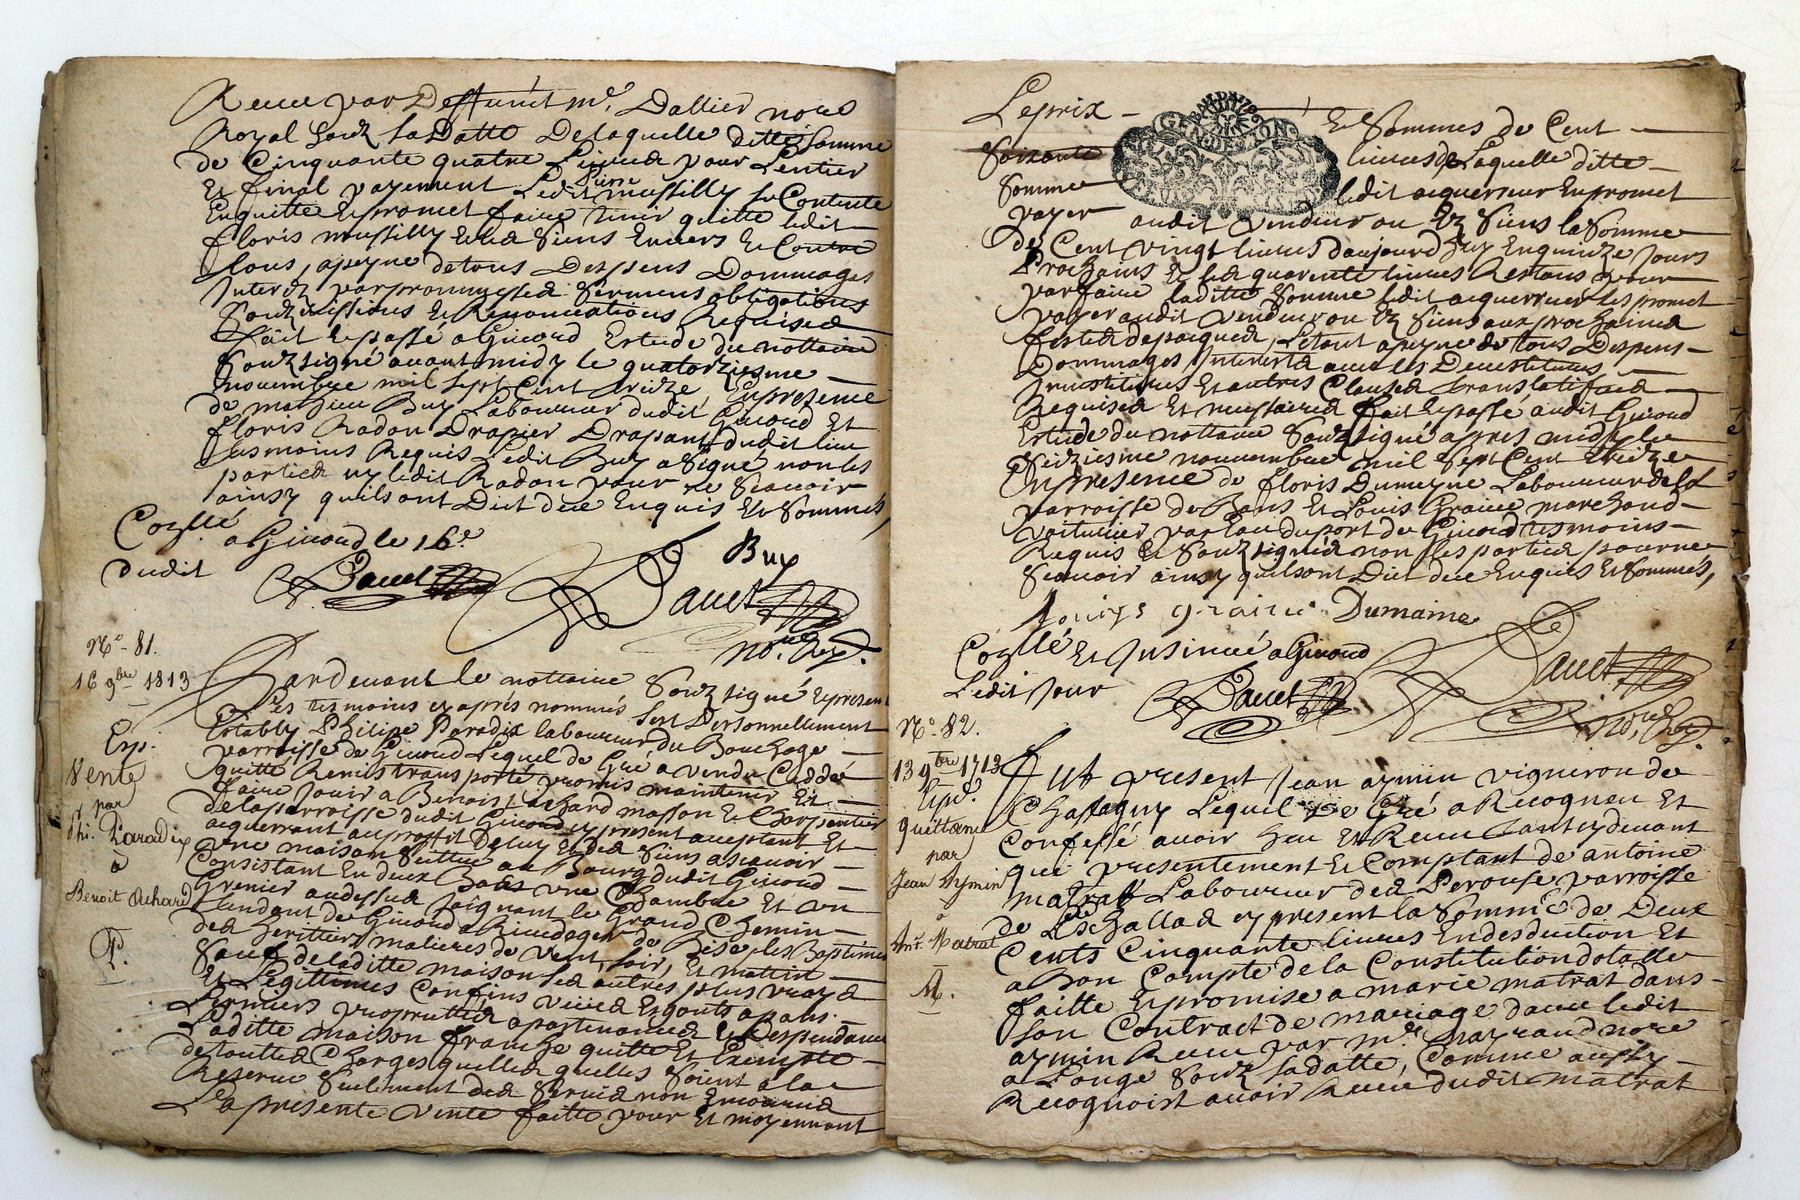 Receu par Deffunct me. Dallier notre
Royal souz la Datte De laquelle ditte somme
de Cinquante quatre Livres pour L'entier
Et final payement Ledit pierre mussilly se Contente
Enquitte Et promet faire tenir quitte ledit
floris mussilly Et les siens Envers Et Contre
tous, apeyne de tous Despens Dommages
Interetz par promesses sermens obligations
souzmissions Et Renonciations Requises
fait Et passé a Givord Estude du nottaire
souzsigné avant midy le quatorziesme
novembre mil sept Cent treize, En presence
de mathieu Buy Laboureur dudit Givord Et
floris Radon Drapier Drapant dudit lieu
tesmoins Requis Ledit Buy a signé non les
parties ny ledit Radon pour ne scavoir
ainsy quils ont Dict de ce Enquis Et sommés,
Coz̃llé a Givord le 16e
dudit
Buy
Bauet
Bauet
no.re Roy.
No. 81.
16 9bre 1813
Exp.
Vente
par
Phi. Paradix
à
Benoit Achard
P.
Pardevant le nottaire souz signé Et present
Les tesmoins cy aprés nommés sest Personnellement
Establly Philipe Paradix laboureur du Bouchage
parroisse de Givord Lequel de Gré a vendu Ceddé
quitté Remis transporté promis maintenir Et
faire Jouir a Benoist Achard masson Et Charpentier
de la parroisse dudit Givord cy present acceptant Et
acquerrant au proffit De luy Et des siens ascavoir
une maison scittue au Bourg dudit Givord
Consistant En deux Bas une Chambre Et un
Grenier au dessus Joignant le Grand Chemin
tendant de Givord a Rivedogier de Bise, les Baptimens
des heritiers malieres de vent, soir, Et mattin
sauf de laditte maison ses autres plus vrays
Et Legittimes Confins vices Esgouts apans
Derniers proprietes apartenances Et Despendances
Laditte maison franche quitte Et Exempte
de touttes Charges quelles quelles soient a la
Reserve seulement des servis non Encourus
La presente vente faitte pour Et moyennant
Le prix
GEN DE LYON
Et sommes de Cent
soixante livres de Laquelle ditte
somme ledit acquerreur En promet
payer audit vendeur ou Ez siens la somme
de Cent vingt livres daujourdhuy En quinze Jours
prochains Et les quarente livres Restans pour
parfaire laditte somme ledit acquerreur les promet
payer audit vendeur ou Ez siens aux prochaines
festes de pasques, Le tout apeyne de tous Despens
Dommages Interets avec les Devestitures
Investitures Et autres Clauses translatifves
Requises Et necessaires fait Et passé audit Givord
Estude du nottaire souz signé apres midy le
seiziesme novembre mil sept Cent treize
En presence de floris Dumeyne Laboureur de la
parroisse de Bans Et Louis Graire marchand
voiturier par Eau du port de Givord tesmoins
Requis Et souz signés non les parties pour ne
scavoir ainsy quils ont Dict de ce Enquis Et sommes,
Louiys graire Dumaine
Coz̃llé Et Insinué a Givord
Ledit Jour
Bauet
Bauet
no.re Roy.
No. 82.
13 9bre 1713
Exp.
quittance
par
Jean Aymin
à
Ant. Matrat
M.
fut present Jean aymin vigneron de
Chassagny Lequel De Gré a Recogneu Et
Confessé avoir heu Et Receu tant cy devant
que presentement Et Comptant de antoine
matrat Laboureur des Perouse parroisse
de Eschallas cy present la somme de Deux
Cents Cinquante livres En desduction Et
a Bon Compte de la Constitution dotalle
faitte Et promise a marie matrat dans
son Contract de mariage avec ledit
aymin Receu par me. mayraud nore
a Longe souz sa datte, Comme aussy
Recognoist avoir Receu dudit matrat